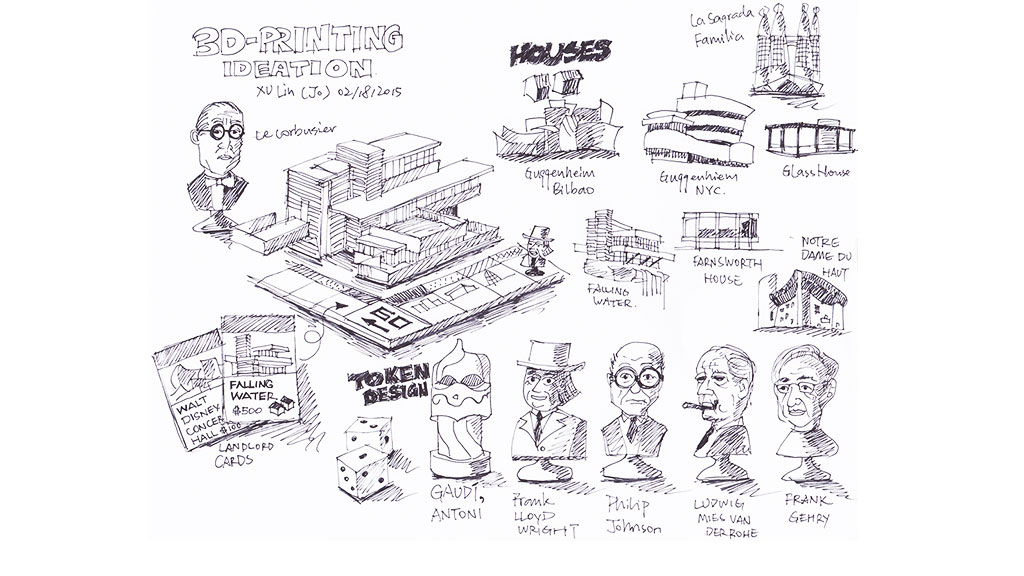 3D-PRINTING
IDEATION
XU Lin (Jo) 02/18/2015
Le Corbusier
HOUSES
La Sagrada
Familia
Guggenheim
Bilbao
Guggenhiem
NYC.
Glass House
FALLING
WATER.
FARNSWORTH
HOUSE
NOTRE
DAME DU
HAUT
GO
WALT
DISNEY
CONCER
HALL $100
FALLING
WATER
$500
LANDLORD
CARDS
TOKEN
DESIGN
GAUDI,
ANTONI
Frank
LLOYD
WRIGHT
Philip
Johnson
LUDWIG
MIES VAN
DER ROHE
FRANK
GEHRY